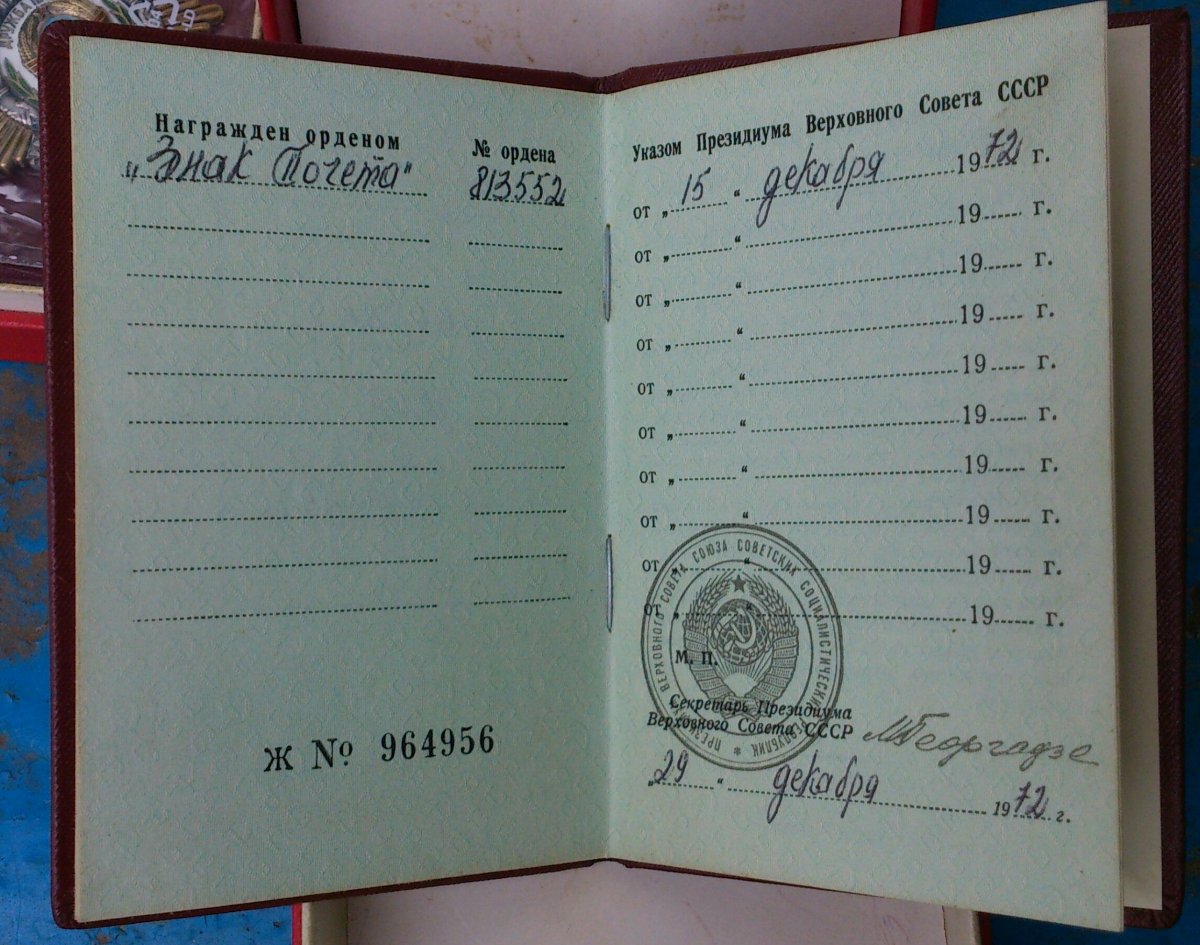 Награжден орденом
„Знак Почета“
№ ордена
813552
Ж № 964956
Указом Президиума Верховного Совета СССР
от „ 15 “ декабря 1972 г.
от „ “ 19 г.
от „ “ 19 г.
от „ “ 19 г.
от „ “ 19 г.
от „ “ 19 г.
от „ “ 19 г.
от „ “ 19 г.
от „ “ 19 г.
от „ “ 19 г.
М. П.
ПРЕЗИДИУМ ВЕРХОВНОГО СОВЕТА СОЮЗА СОВЕТСКИХ СОЦИАЛИСТИЧЕСКИХ РЕСПУБЛИК
Секретарь Президиума
Верховного Совета СССР
МГеоргадзе
„29“ декабря 1972 г.